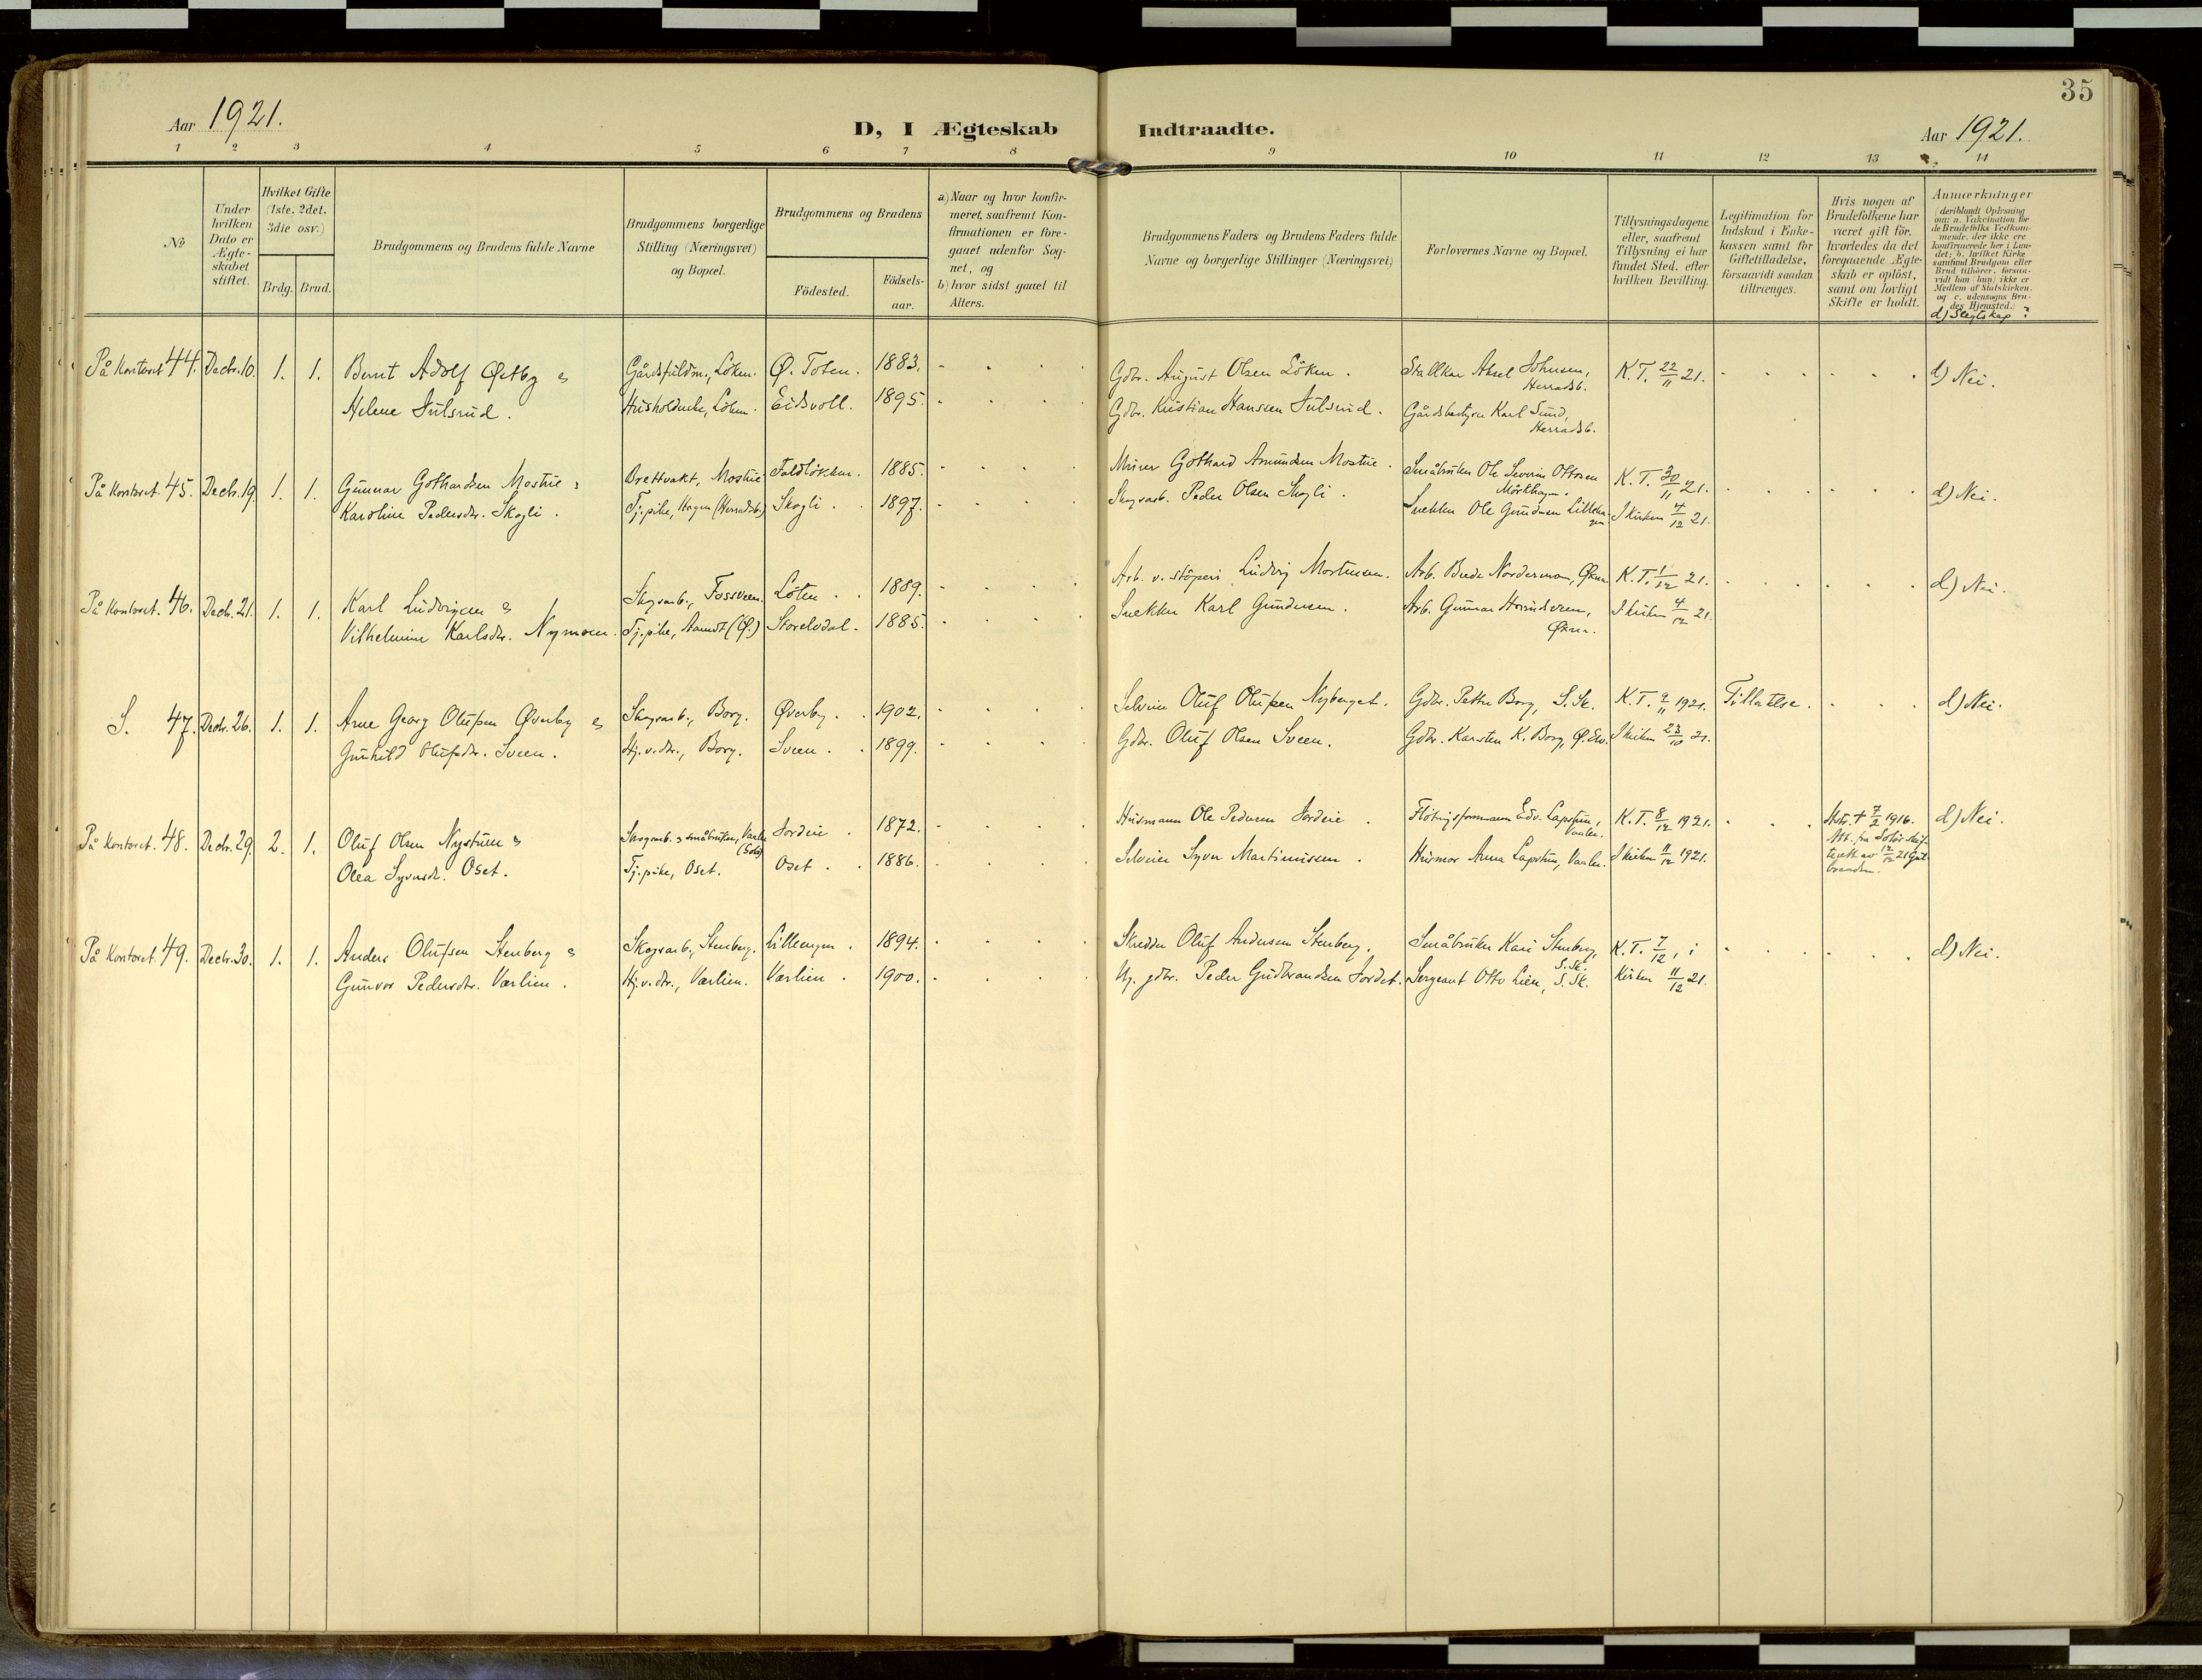 35
Aar 1921.
D, I Ægteskab Indtraadte.
Aar 1921.
1 2 3 4 5 6 7 8 9 10 11 12 13 14
No
Under hvilken Dato er Ægteskabet stiftet.
Hvilket Gifte (1ste, 2det, 3die osv.)
Brdg. Brud.
Brudgommens og Brudens fulde Navne
Brudgommens borgerlige Stilling (Næringsvei) og Bopæl.
Brudgommens og Brudens
Födested.
Födsels-aar.
a) Naar og hvor konfirmeret, saafremt Konfirmationen er foregaaet udenfor Sognet, og
b) hvor sidst gaaet til Alters.
Brudgommens Faders og Brudens Faders fulde Navne og borgerlige Stillinger (Næringsvei)
Forlovernes Navne og Bopæl.
Tillysningsdagene eller, saafremt Tillysning ei har fundet Sted, efter hvilken Bevilling.
Legitimation for Indskud i Enkekassen samt for Giftetilladelse, forsaavidt saadan tiltrænges.
Hvis nogen af Brudefolkene har været gift för, hvorledes da det foregaaende Ægteskab er oplöst, samt om lovligt Skifte er holdt.
Anmærkninger
(deriblandt Oplysning om: a. Vakcination for de Brudefolks Vedkommende, der ikke ere konfirmerede her i Landet; b. hvilket Kirkesamfund Brudgom eller Brud tilhører, forsaavidt han (hun) ikke er Medlem af Statskirken, og c. udensogns Brudes Hjemsted.)
d) Slegtskap ?
På Kontoret 44. Decbr. 10. 1. 1. Bernt Adolf Østby & Gårdsfuldm., Löken. Ø. Toten. 1883. Gdbr. August Olsen Löken. Stallkar Aksel Johnsen, Herradsb. K. T. 22/11 21. d) Nei.
Helene Julsrud. Husholderske, Löken. Eidsvoll. 1895. Gdbr. Kristian Hanssen Julsrud. Gårdsbestyrer Karl Sund, Herradsb.
På Kontoret. 45. Decbr. 19. 1. 1. Gunnar Gothardsen Mostue & Brettvakt, Mostue 1885. Murer Gothard Amundsen Mostue. Småbruker Ole Severin Ottosen K. T. 30/11 21. d) Nei.
Karoline Pedersdr. Skogli. Tj.pike, Hagen (Herradsb.) Skogli. 1897. Skogsarb. Peder Olsen Skogli. Snekker Ole Gundersen I kirken 4/12 21.
På Kontoret. 46. Decbr. 21. 1. 1. Karl Ludvigsen & Skogsarb., Fossveen. Löten. 1889. Arb. v. stöperi Ludvig Mortensen. K. T. 1/12 21. d) Nei.
Vilhelmine Karlsdr. Nymoen. Tj.pike, Aamot (Ø.) Storelvdal. 1885. Snekker Karl Gundersen. Arb. Gunnar I kirken 4/12 21.
S. 47. Decbr. 26. 1. 1. Arne Georg Olufsen Øverby & Skogsarb., Borg. Øverby. 1902. Selveier Oluf Olufsen Nyberget. Gdbr. Petter Borg, S. Sk. K. T. 9/11 1921. Tillatelse. d) Nei.
Gunhild Olufsdr. Sveen. Hj.v.dtr., Borg. Sveen. 1899. Gdbr. Oluf Olsen Sveen. Gdbr. Karsten K. Borg, I kirken 23/10 21.
På Kontoret. 48. Decbr. 29. 2. 1. Oluf Olsen Nystuen & Skogsarb. & småbruker, Vaaler (Solör) Jordeie. 1872. Husmann Ole Pedersen Jordeie. Flötningsformann Edv. Lapstun, Vaaler. K. T. 8/12 1921. Hstr. † 7/2 1916. Att. fra Solör skifterett av 12/12 21 d) Nei.
Olea Syversdr. Oset. Tj.pike, Oset. Oset. 1886. Selveier Syver Martinussen. Husmor Anna Lapstun, Vaaler. I kirken 11/12 1921.
På Kontoret. 49. Decbr. 30. 1. 1. Anders Olufsen Stenberg & Skogsarb., Stenberg. Lillengen. 1894. Skredder Oluf Andersen Stenberg. Småbruker Kari Stenberg, S. Sk. K. T. 7/12, i d) Nei.
Gunvor Pedersdtr. Værlien. Hj.v.dtr., Værlien. Værlien. 1900. Ug. gdbr. Peder Gudbrandsen Jordet. Sergeant Otto Lien, S. Sk. Kirken 11/12 21.